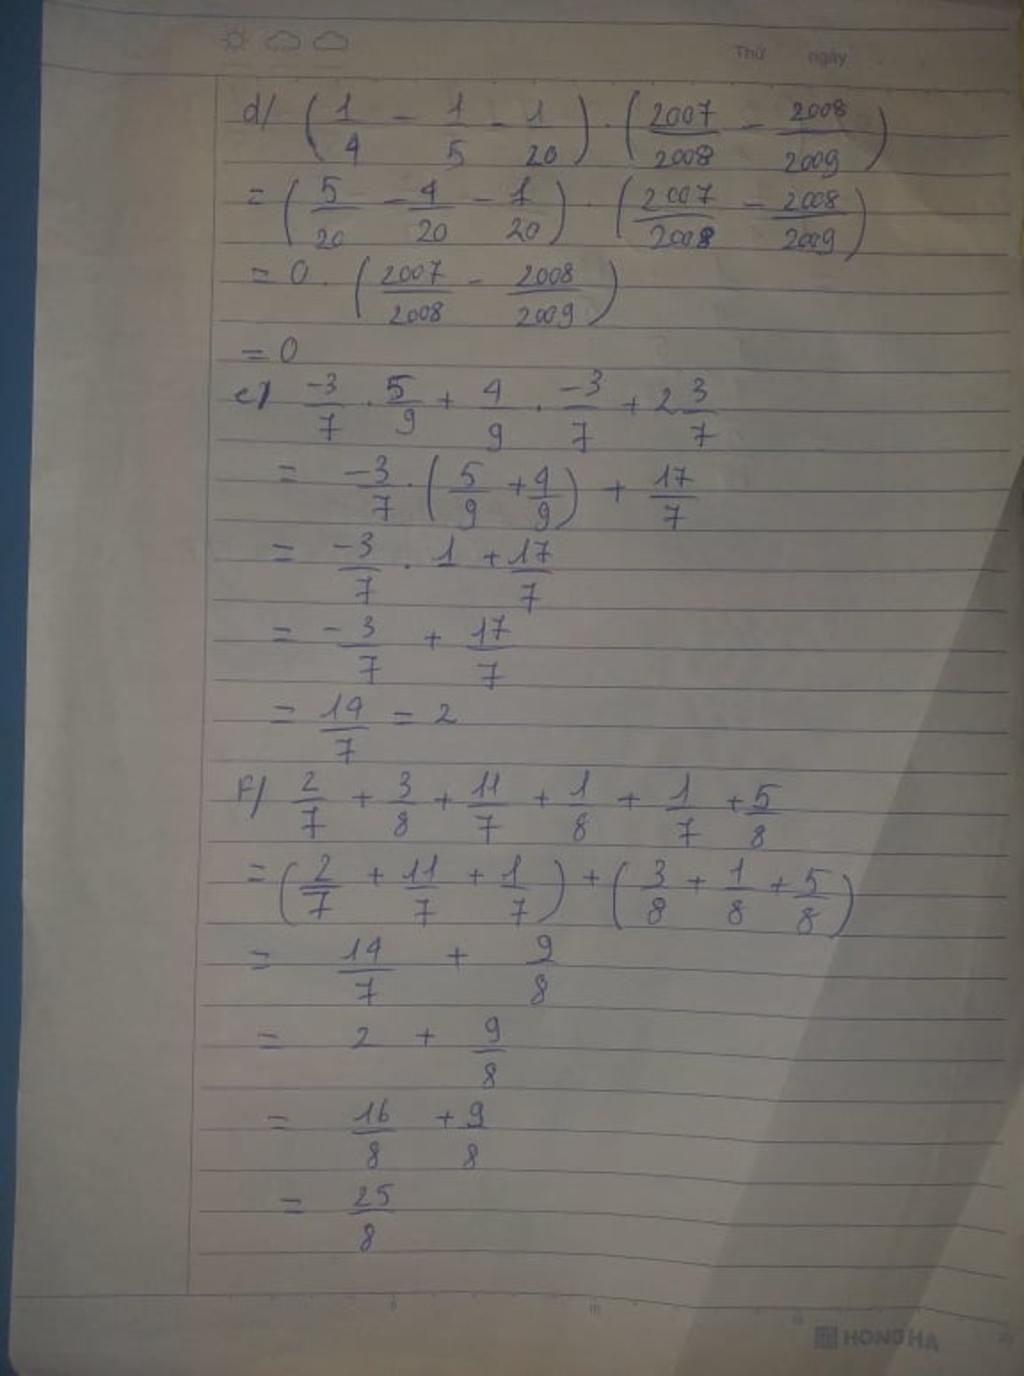 Thứ ngày
d/ (1/4 - 1/5 - 1/20) . (2007/2008 - 2008/2009)
= (5/20 - 4/20 - 1/20) . (2007/2008 - 2008/2009)
= 0 . (2007/2008 - 2008/2009)
= 0
e/ -3/7 . 5/9 + 4/9 . -3/7 + 2 3/7
= -3/7 . (5/9 + 4/9) + 17/7
= -3/7 . 1 + 17/7
= -3/7 + 17/7
= 14/7 = 2
F/ 2/7 + 3/8 + 11/7 + 1/8 + 1/7 + 5/8
= (2/7 + 11/7 + 1/7) + (3/8 + 1/8 + 5/8)
= 14/7 + 9/8
= 2 + 9/8
= 16/8 + 9/8
= 25/8
HONG HA